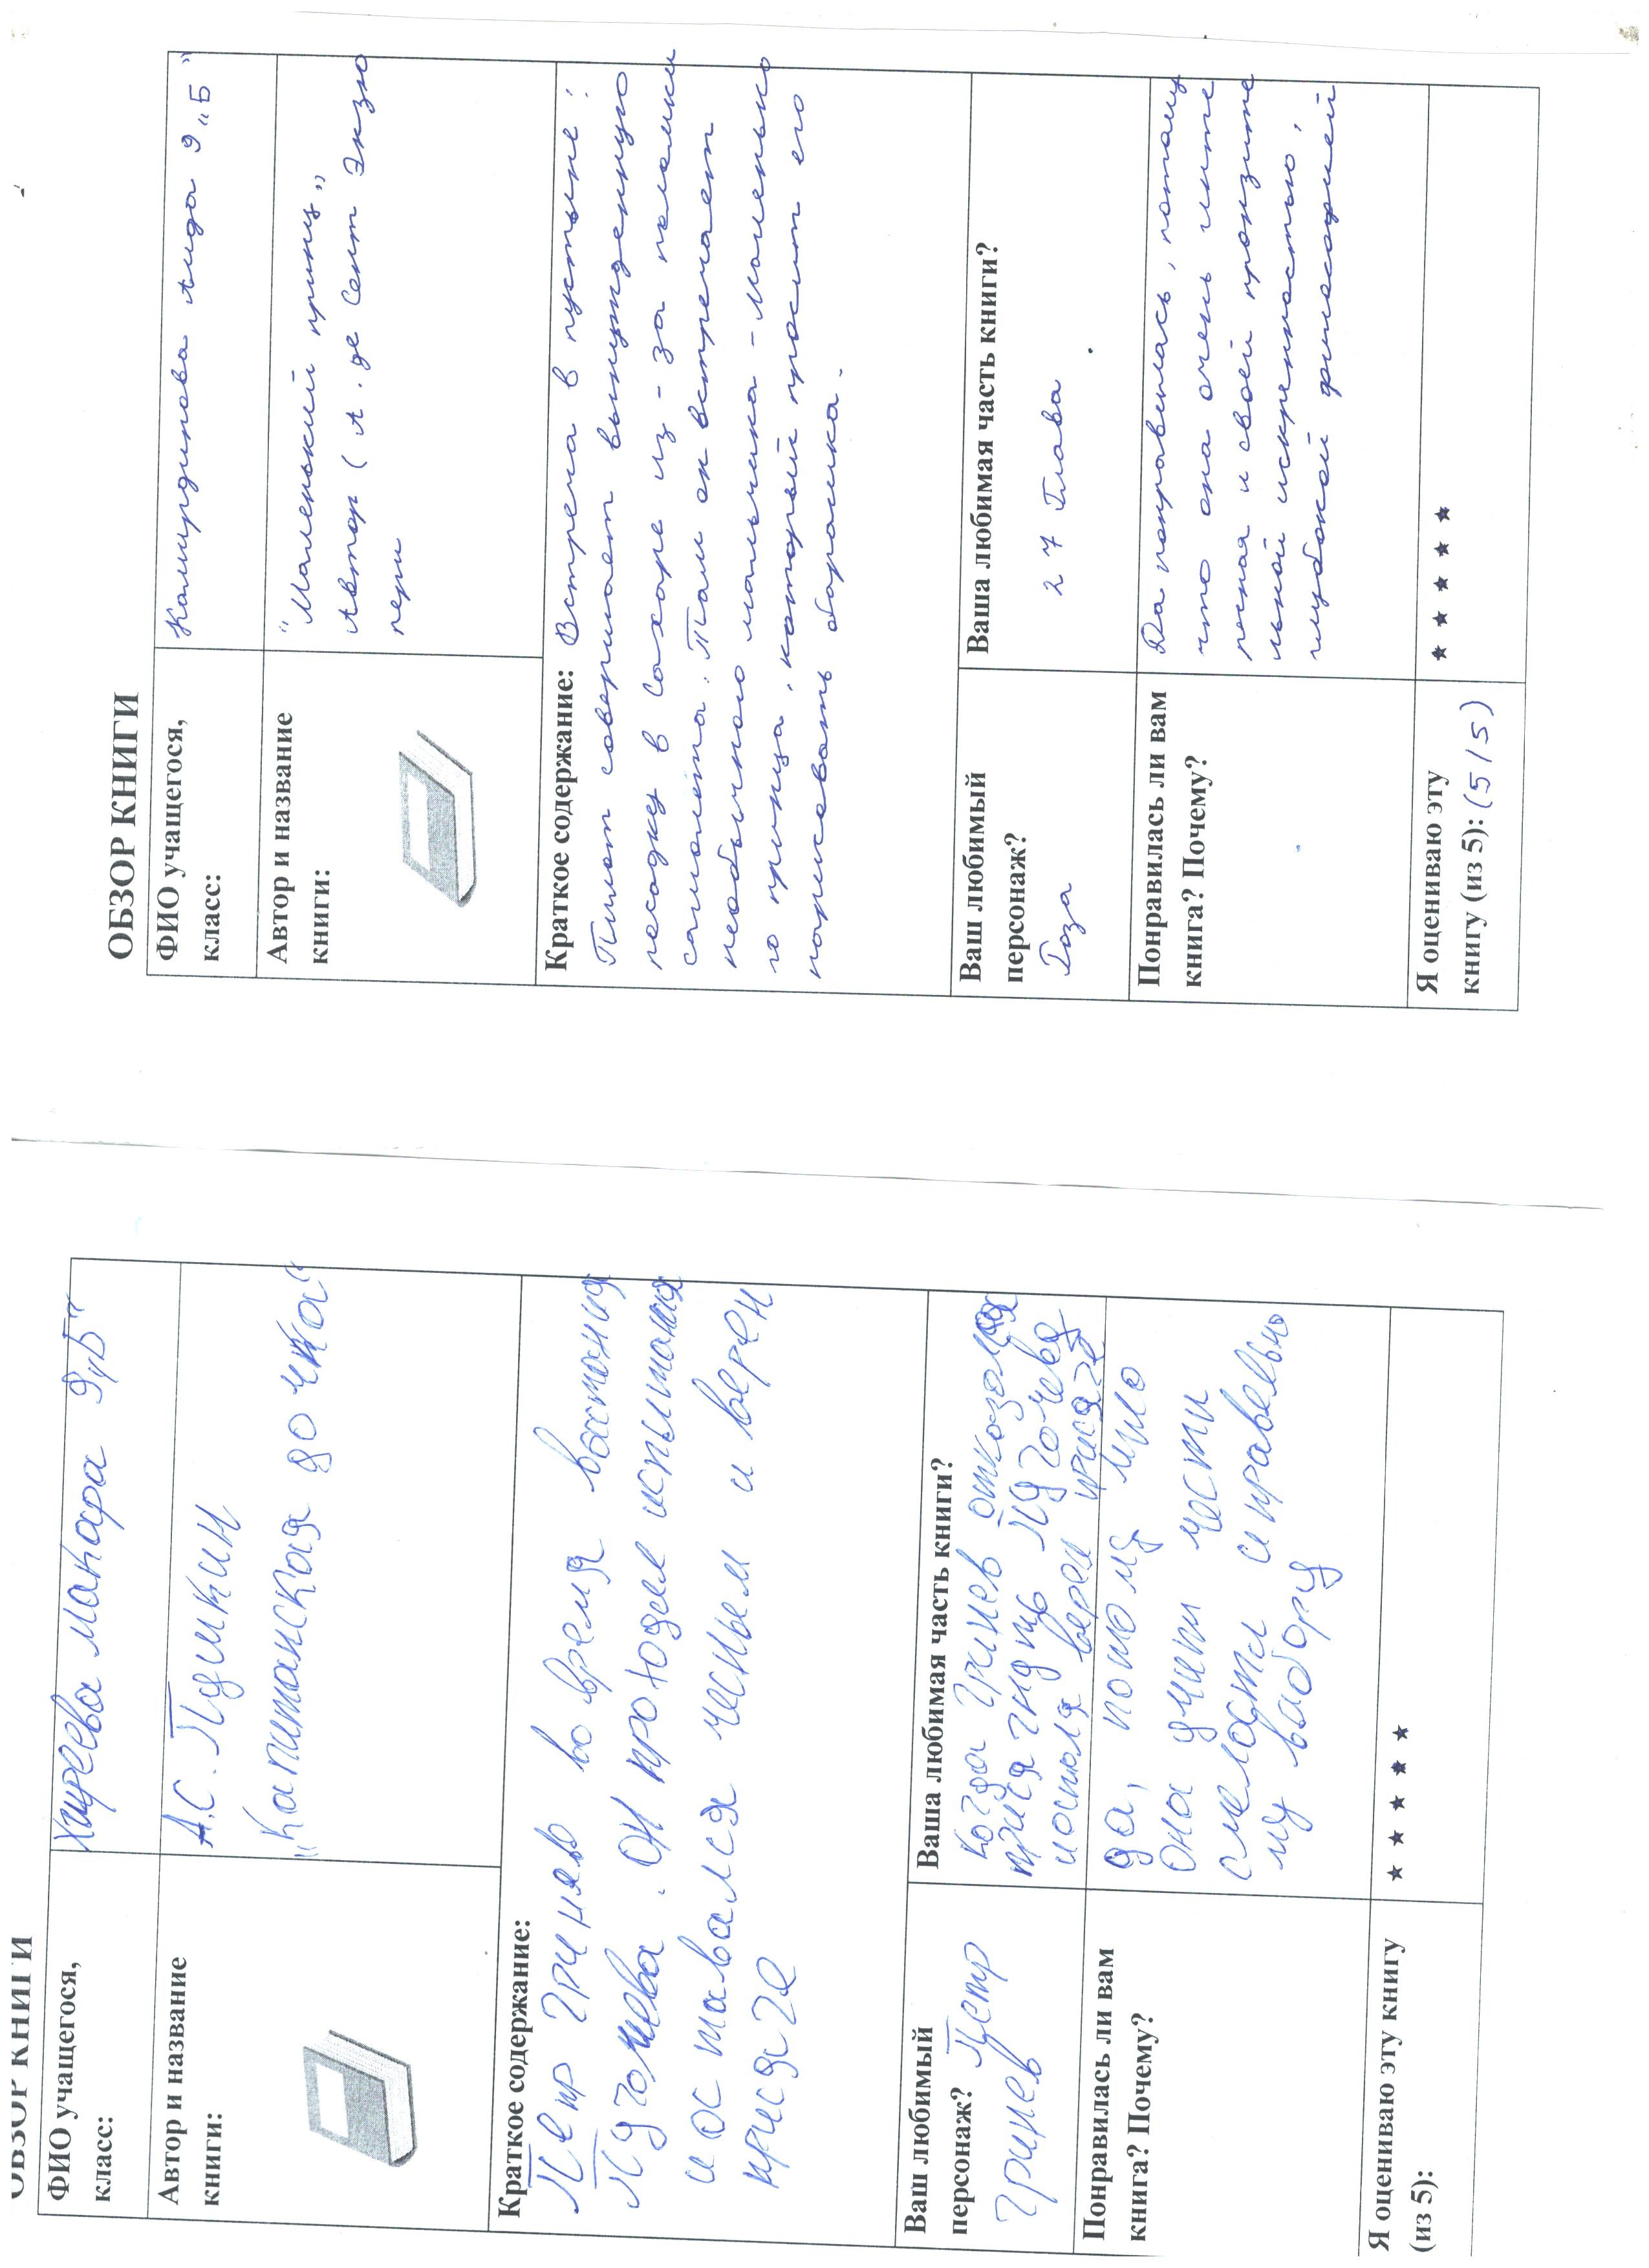 ОБЗОР КНИГИ
ФИО учащегося,
класс:
Хиреева макара 9„Б“
Автор и название
книги:
А.С. Пушкин
„Капитанская дочка“
Краткое содержание:
Петр Гринев во время восстания
Пугочева. Он проходил испытания
и оставался чесным и верен
присяге
Ваш любимый
персонаж? Петр
Гринев
Ваша любимая часть книги?
когда Гринев отказался
присягнуть Пугочеву
и остался верен присяге
Понравилась ли вам
книга? Почему?
да, потому што
она учит чести
смелости и правельно
му выбору
Я оцениваю эту книгу
(из 5):
★ ★ ★ ★ ★
ОБЗОР КНИГИ
ФИО учащегося,
класс:
Камирдинова Аида 9 „Б“
Автор и название
книги:
"Маленький принц„
Автор ( А. де Сент Экзю
пери
Краткое содержание: Встреча в пустыне:
Пилот совершает вынужденную
посадку в Сахаре из-за поломки
самолёта. Там он встречает
необычного мальчика - Маленько
го принца, который просит его
нарисовать барашка.
Ваш любимый
персонаж?
Роза
Ваша любимая часть книги?
27 Глава
Понравилась ли вам
книга? Почему?
Да понравилась, потому
что она очень инте
ресная и своей пронзите
льной искренностью,
глубокой философией
Я оцениваю эту
книгу (из 5): (5/5)
★ ★ ★ ★ ★